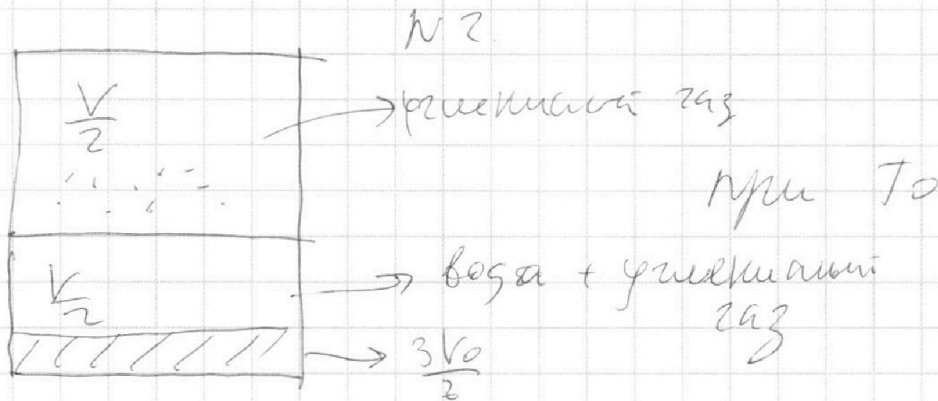 N 2.
V/2
углекислый газ
при T0
V/2
вода + углекислый
газ
3V0/2